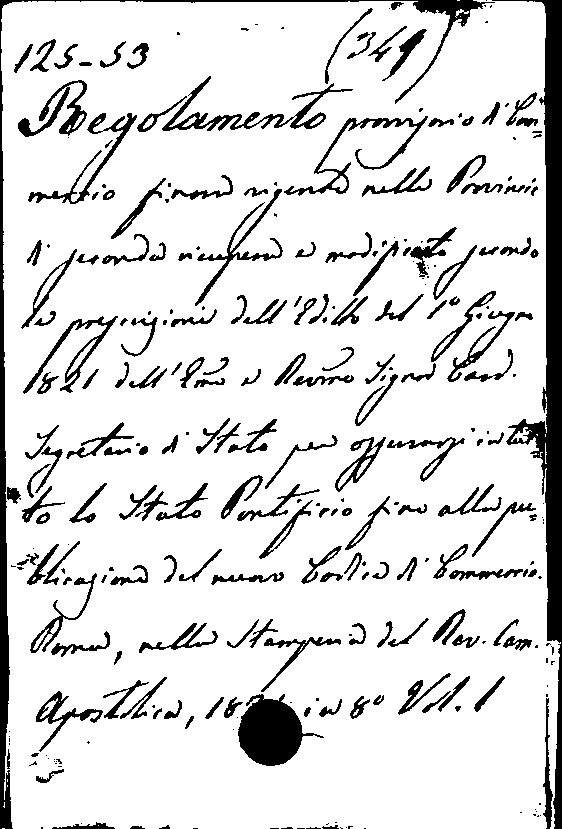 125-53 (349)
Regolamento provvisorio di Com=
mercio finora vigente nelle Provincie
di seconda ricupera e modificato secondo
le prescrizioni dell'Editto del 1º Giugno
1821 dell'Emo e Revmo Signor Card.
Segretario di Stato per osservarsi in tut=
to lo Stato Pontificio fino alla pu=
blicazione del nuovo Codice di Commercio.
Roma, nella Stamperia del Rev. Cam.
Apostolica, in 8º Vol. 1